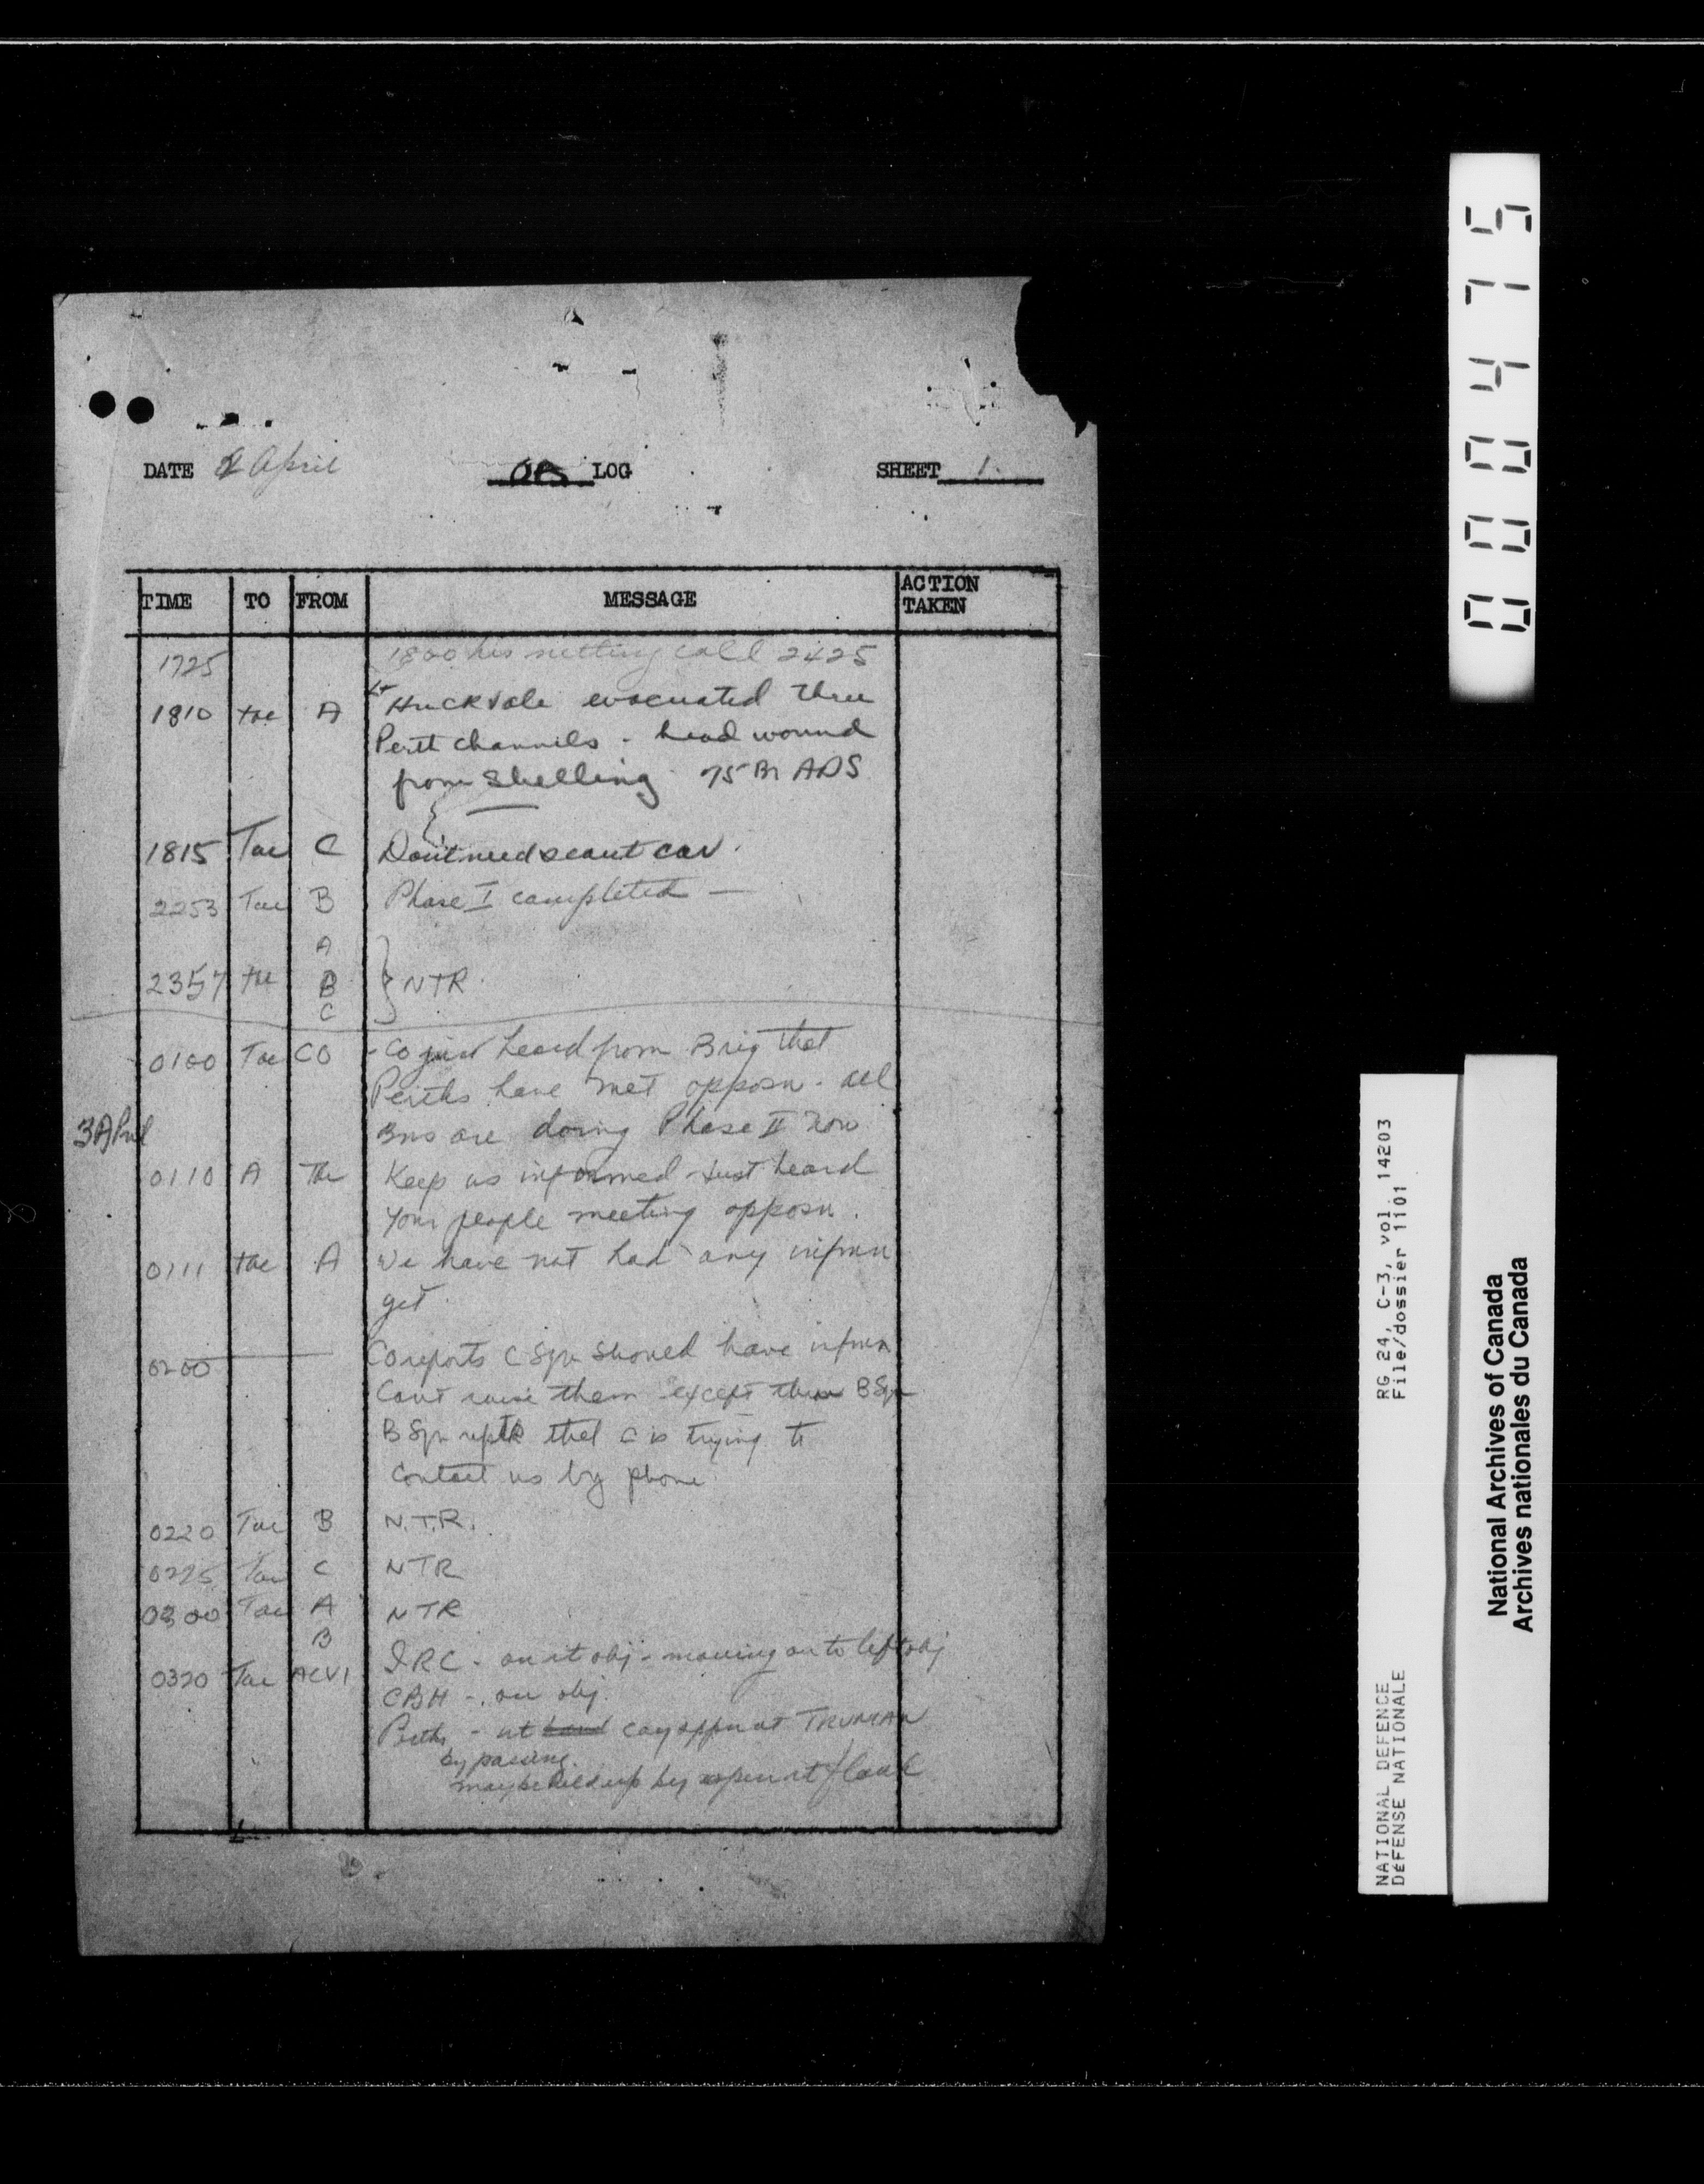 DATE 2 April
OPS LOG
SHEET 1.
TIME TO FROM MESSAGE ACTION TAKEN
1725 1800 hrs netting call 2425
1810 tac A Lt Huckvale evacuated thru
Perth channels - head wound
from shelling. 75 Br ADS
1815 Tac C Don't need scout car.
2253 Tac B Phase I completed —
A
2357 tac B } NTR.
C
0100 Tac CO - CO just heard from Brig that
Perths have met opposn - all
3 April
Bns are doing Phase II now
0110 A Tac Keep us informed - Just heard
your people meeting opposn.
0111 tac A We have not had any infmn
yet.
0200 CO reports C Sqn should have infmn
Can't raise them except thru B Sqn
B Sqn repts that C is trying to
contact us by phone
0220 Tac B N.T.R.
0225 Tac C NTR
0300 Tac A NTR
B
0320 Tac ACV1 IRC - on rt obj - moving on to left obj
CBH - on obj.
Perths - at coy oppn at TRUMAN
by passing.
may be held up by open rt flank
000475
RG 24, C-3, vol. 14203
File/dossier 1101
NATIONAL DEFENCE
DÉFENSE NATIONALE
National Archives of Canada
Archives nationales du Canada